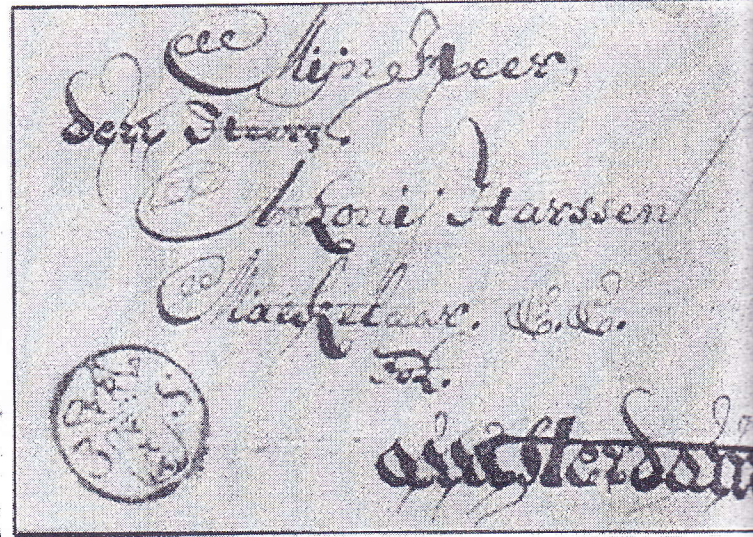 Mijn Heer,
den
Antonij Harssen
Makelaar. &.&.
Tot.
amsterdam